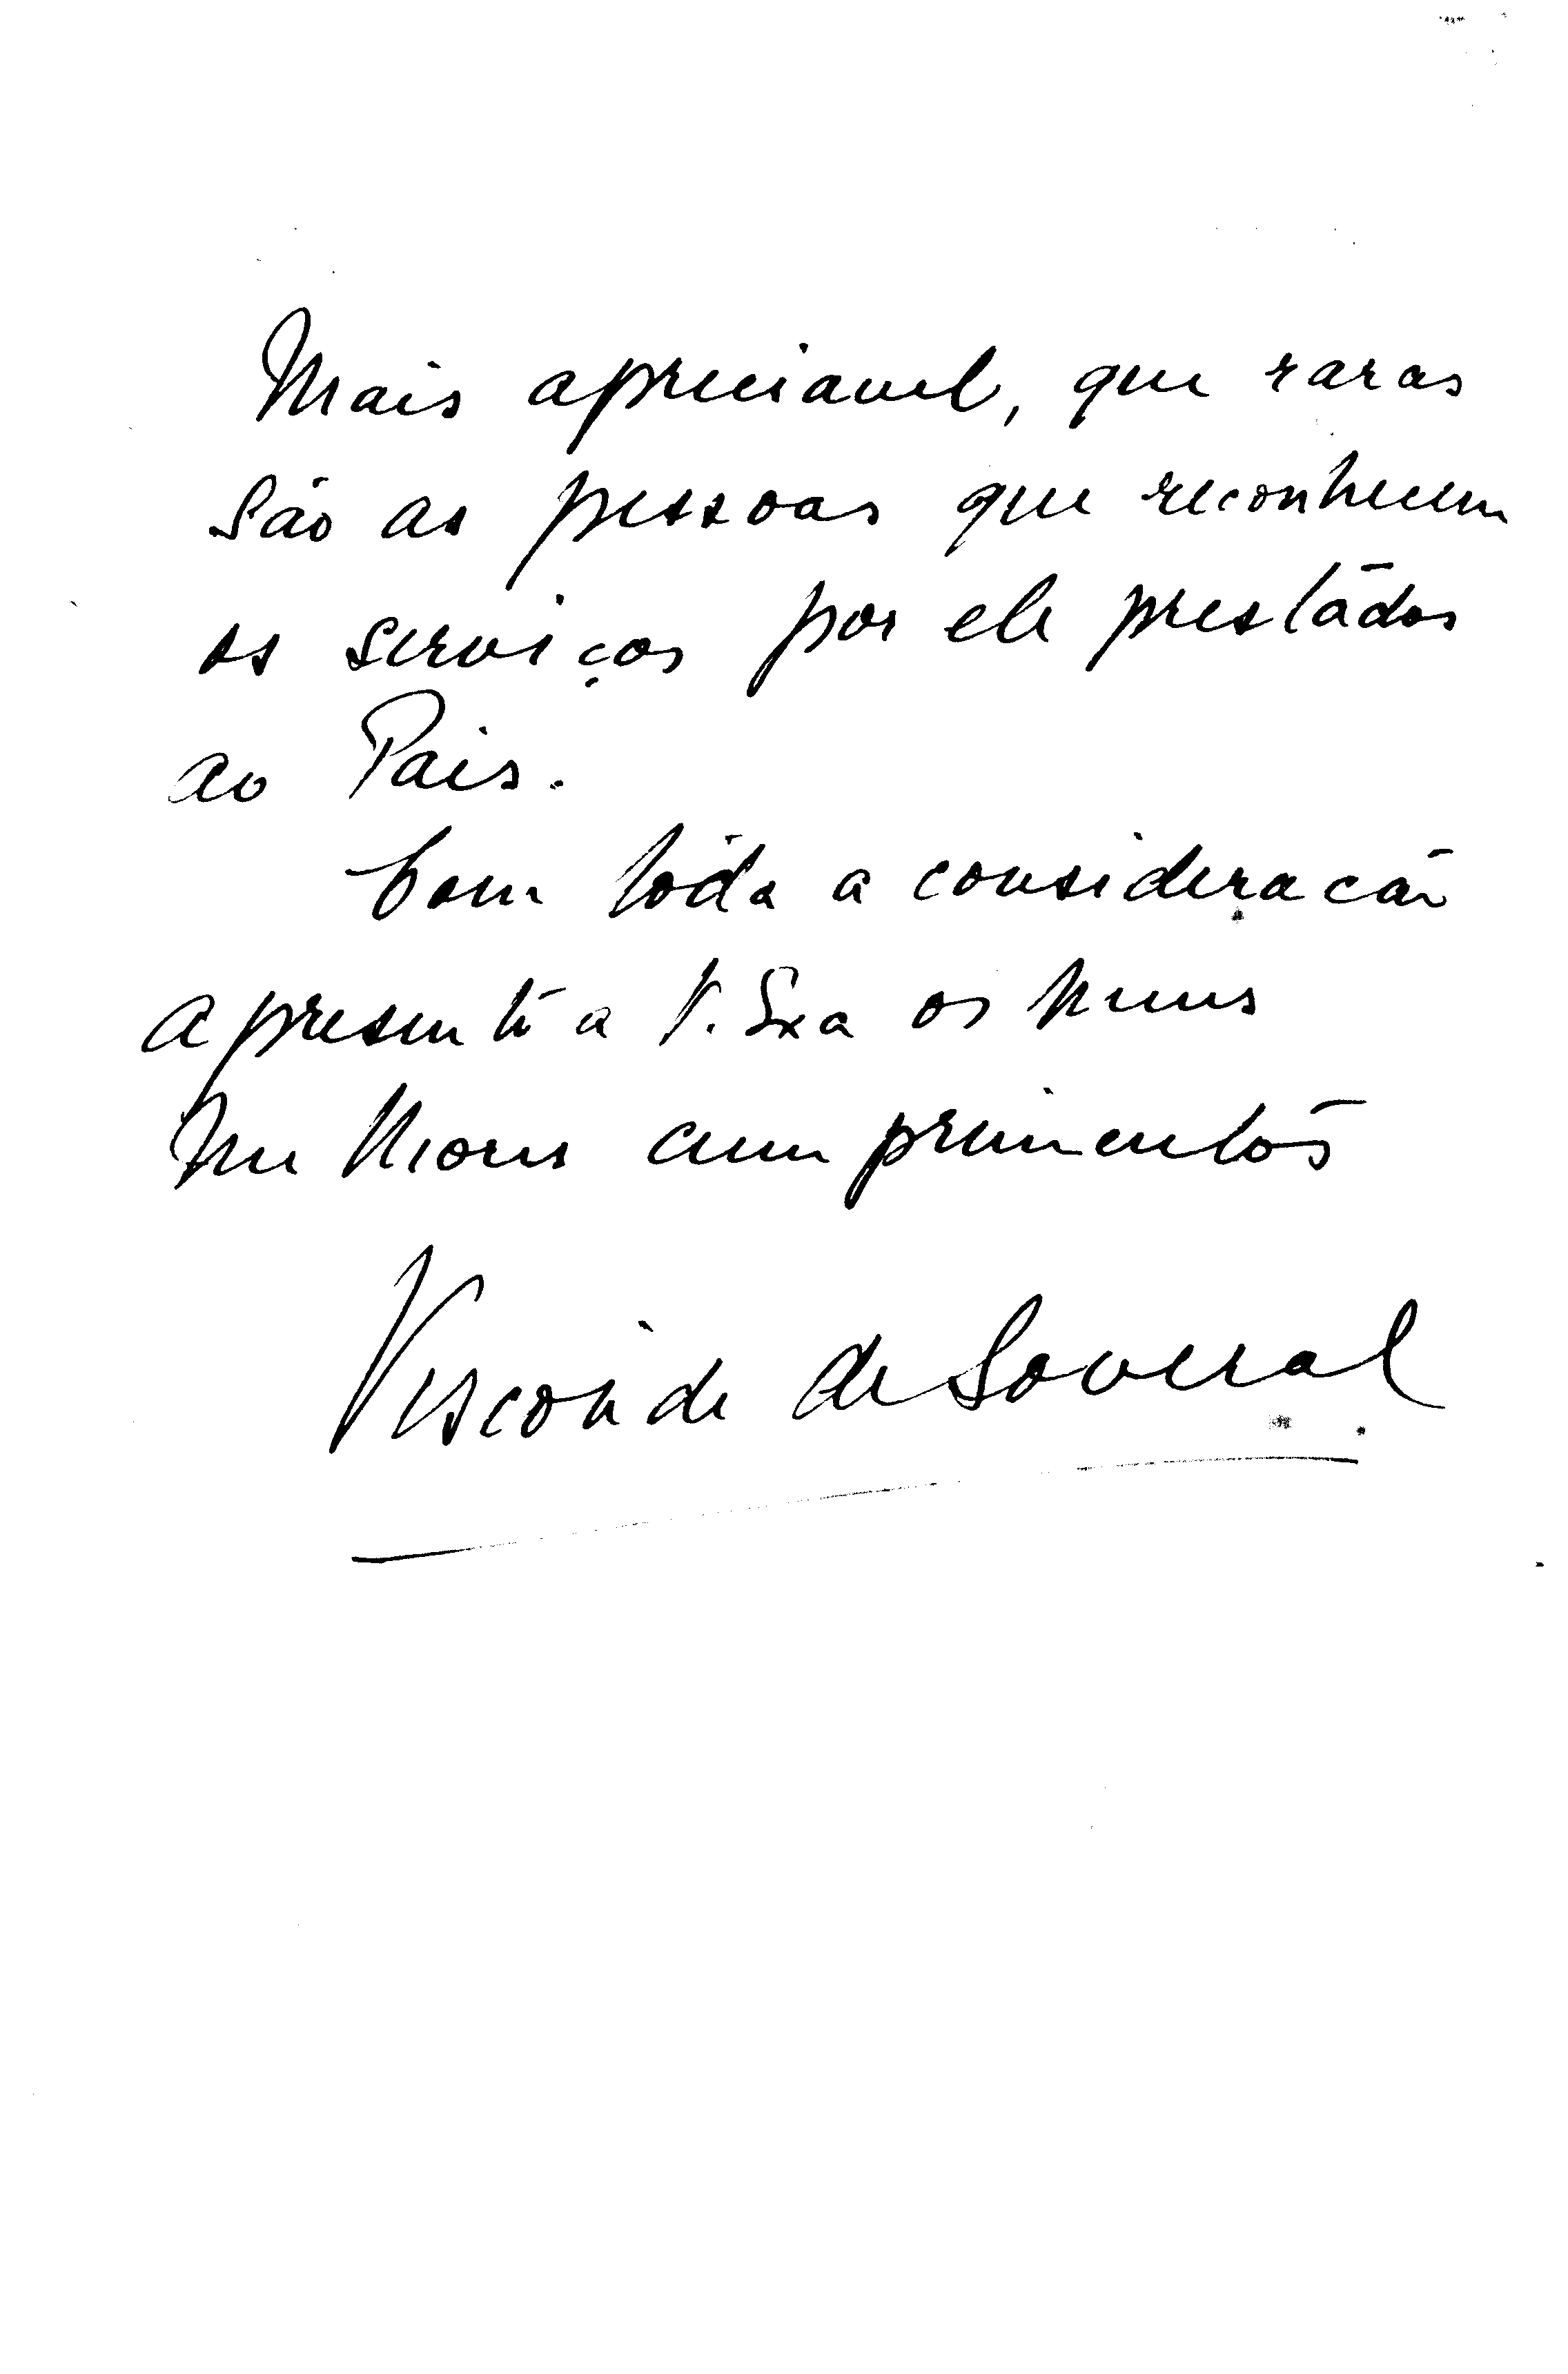 Mais apreciavel, que raras
são as pessoas que reconhecem
os serviços por ele prestados
ao Pais.
Com toda a consideração
apresento a V. Exa os meus
melhores cumprimentos
Visconde de Soveral